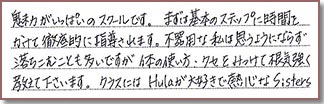 魅力がいっぱいのスクールです。まずは基本のステップに時間を
かけて徹底的に指導されます。不器用な私は思うようにならず
落ちこむことも多いですが体の使い方・クセをみつけて根気強く
教えて下さいます。クラスにはHulaが大好きで熱心なSisters